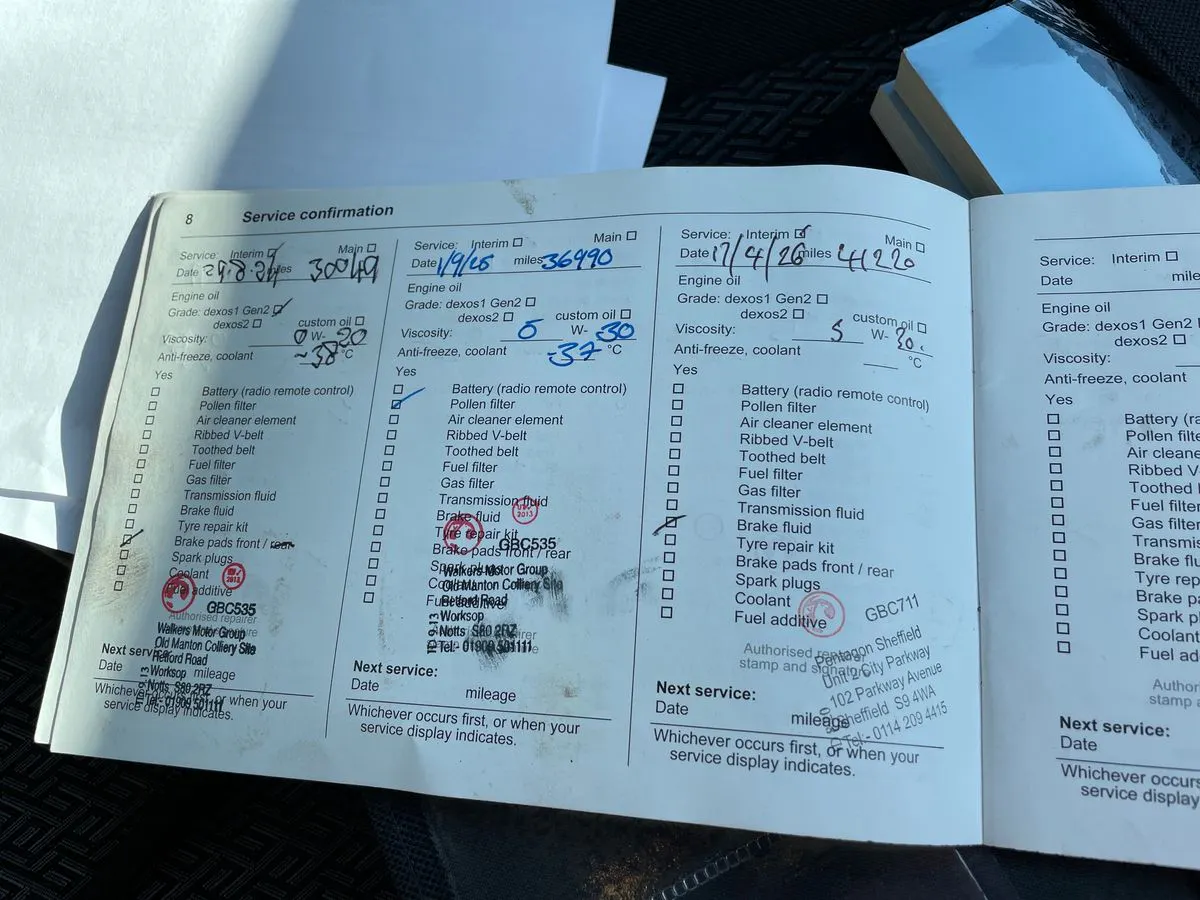 8
Service confirmation
Service: Interim Main
Date 29.8.24 miles 30049
Engine oil
Grade: dexos1 Gen2
dexos2
custom oil
Viscosity: 0 W- 20
Anti-freeze, coolant -38 °C
Yes
Battery (radio remote control)
Pollen filter
Air cleaner element
Ribbed V-belt
Toothed belt
Fuel filter
Gas filter
Transmission fluid
Brake fluid
Tyre repair kit
Brake pads front / rear
Spark plugs
Coolant
Fuel additive
GBC535
Authorised repairer
Walkers Motor Group
Old Manton Colliery Site
Retford Road
Worksop
Notts S80 2RZ
Tel:- 01909 501111
Next service:
Date mileage
Whichever occurs first, or when your
service display indicates.
Service: Interim Main
Date 1/9/25 miles 36990
Engine oil
Grade: dexos1 Gen2
dexos2
custom oil
Viscosity: 0 W- 30
Anti-freeze, coolant -37 °C
Yes
Battery (radio remote control)
Pollen filter
Air cleaner element
Ribbed V-belt
Toothed belt
Fuel filter
Gas filter
Transmission fluid
Brake fluid
Tyre repair kit
Brake pads front / rear
Spark plugs
Coolant
Fuel additive
2013
GBC535
Walkers Motor Group
Old Manton Colliery Site
Retford Road
Worksop
Notts S80 2RZ
Tel:- 01909 501111
Next service:
Date mileage
Whichever occurs first, or when your
service display indicates.
Service: Interim Main
Date 17/4/26 miles 41220
Engine oil
Grade: dexos1 Gen2
dexos2
custom oil
Viscosity: 5 W- 30.
Anti-freeze, coolant °C
Yes
Battery (radio remote control)
Pollen filter
Air cleaner element
Ribbed V-belt
Toothed belt
Fuel filter
Gas filter
Transmission fluid
Brake fluid
Tyre repair kit
Brake pads front / rear
Spark plugs
Coolant
Fuel additive
GBC711
Authorised repairer
stamp and signature
Pentagon Sheffield
Unit 2 City Parkway
102 Parkway Avenue
Sheffield S9 4WA
Tel:- 0114 209 4415
Next service:
Date mileage
Whichever occurs first, or when your
service display indicates.
Service: Interim
Date mile
Engine oil
Grade: dexos1 Gen2
dexos2
Viscosity:
Anti-freeze, coolant
Yes
Battery (ra
Pollen filte
Air cleane
Ribbed V
Toothed
Fuel filter
Gas filter
Transmis
Brake flu
Tyre rep
Brake pa
Spark p
Coolant
Fuel ad
Author
stamp a
Next service:
Date
Whichever occurs
service display